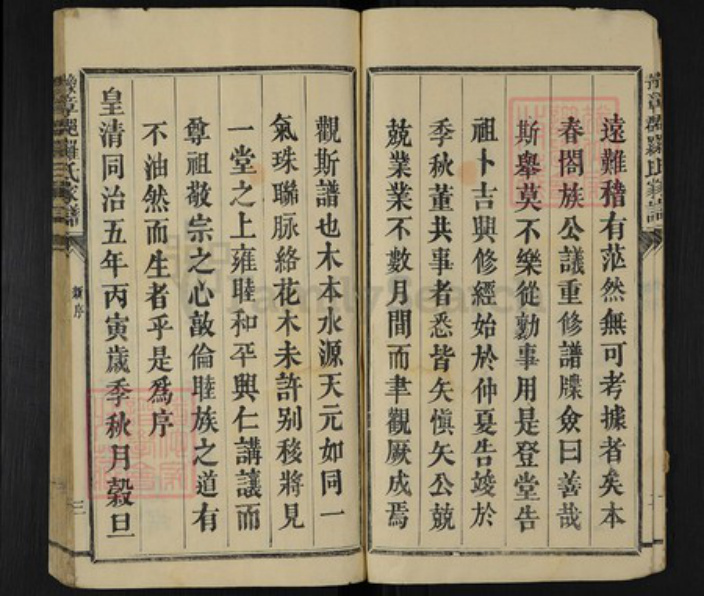 遠難稽有茫然無可考據者矣本
春閤族公議重修譜牒僉曰善哉
斯舉莫不樂從勷事用是登堂告
祖卜吉興修經始於仲夏告竣於
季秋董共事者悉皆矢慎矢公兢
兢業業不數月間而聿觀厥成焉
觀斯譜也木本水源天元如同一
氣珠聯脉絡花木未許别移將見
一堂之上雍睦和平興仁講讓而
尊祖敬宗之心敦倫睦族之道有
不油然而生者乎是為序
皇清同治五年丙寅歲季秋月穀旦
豫章羅氏家譜
新序
三